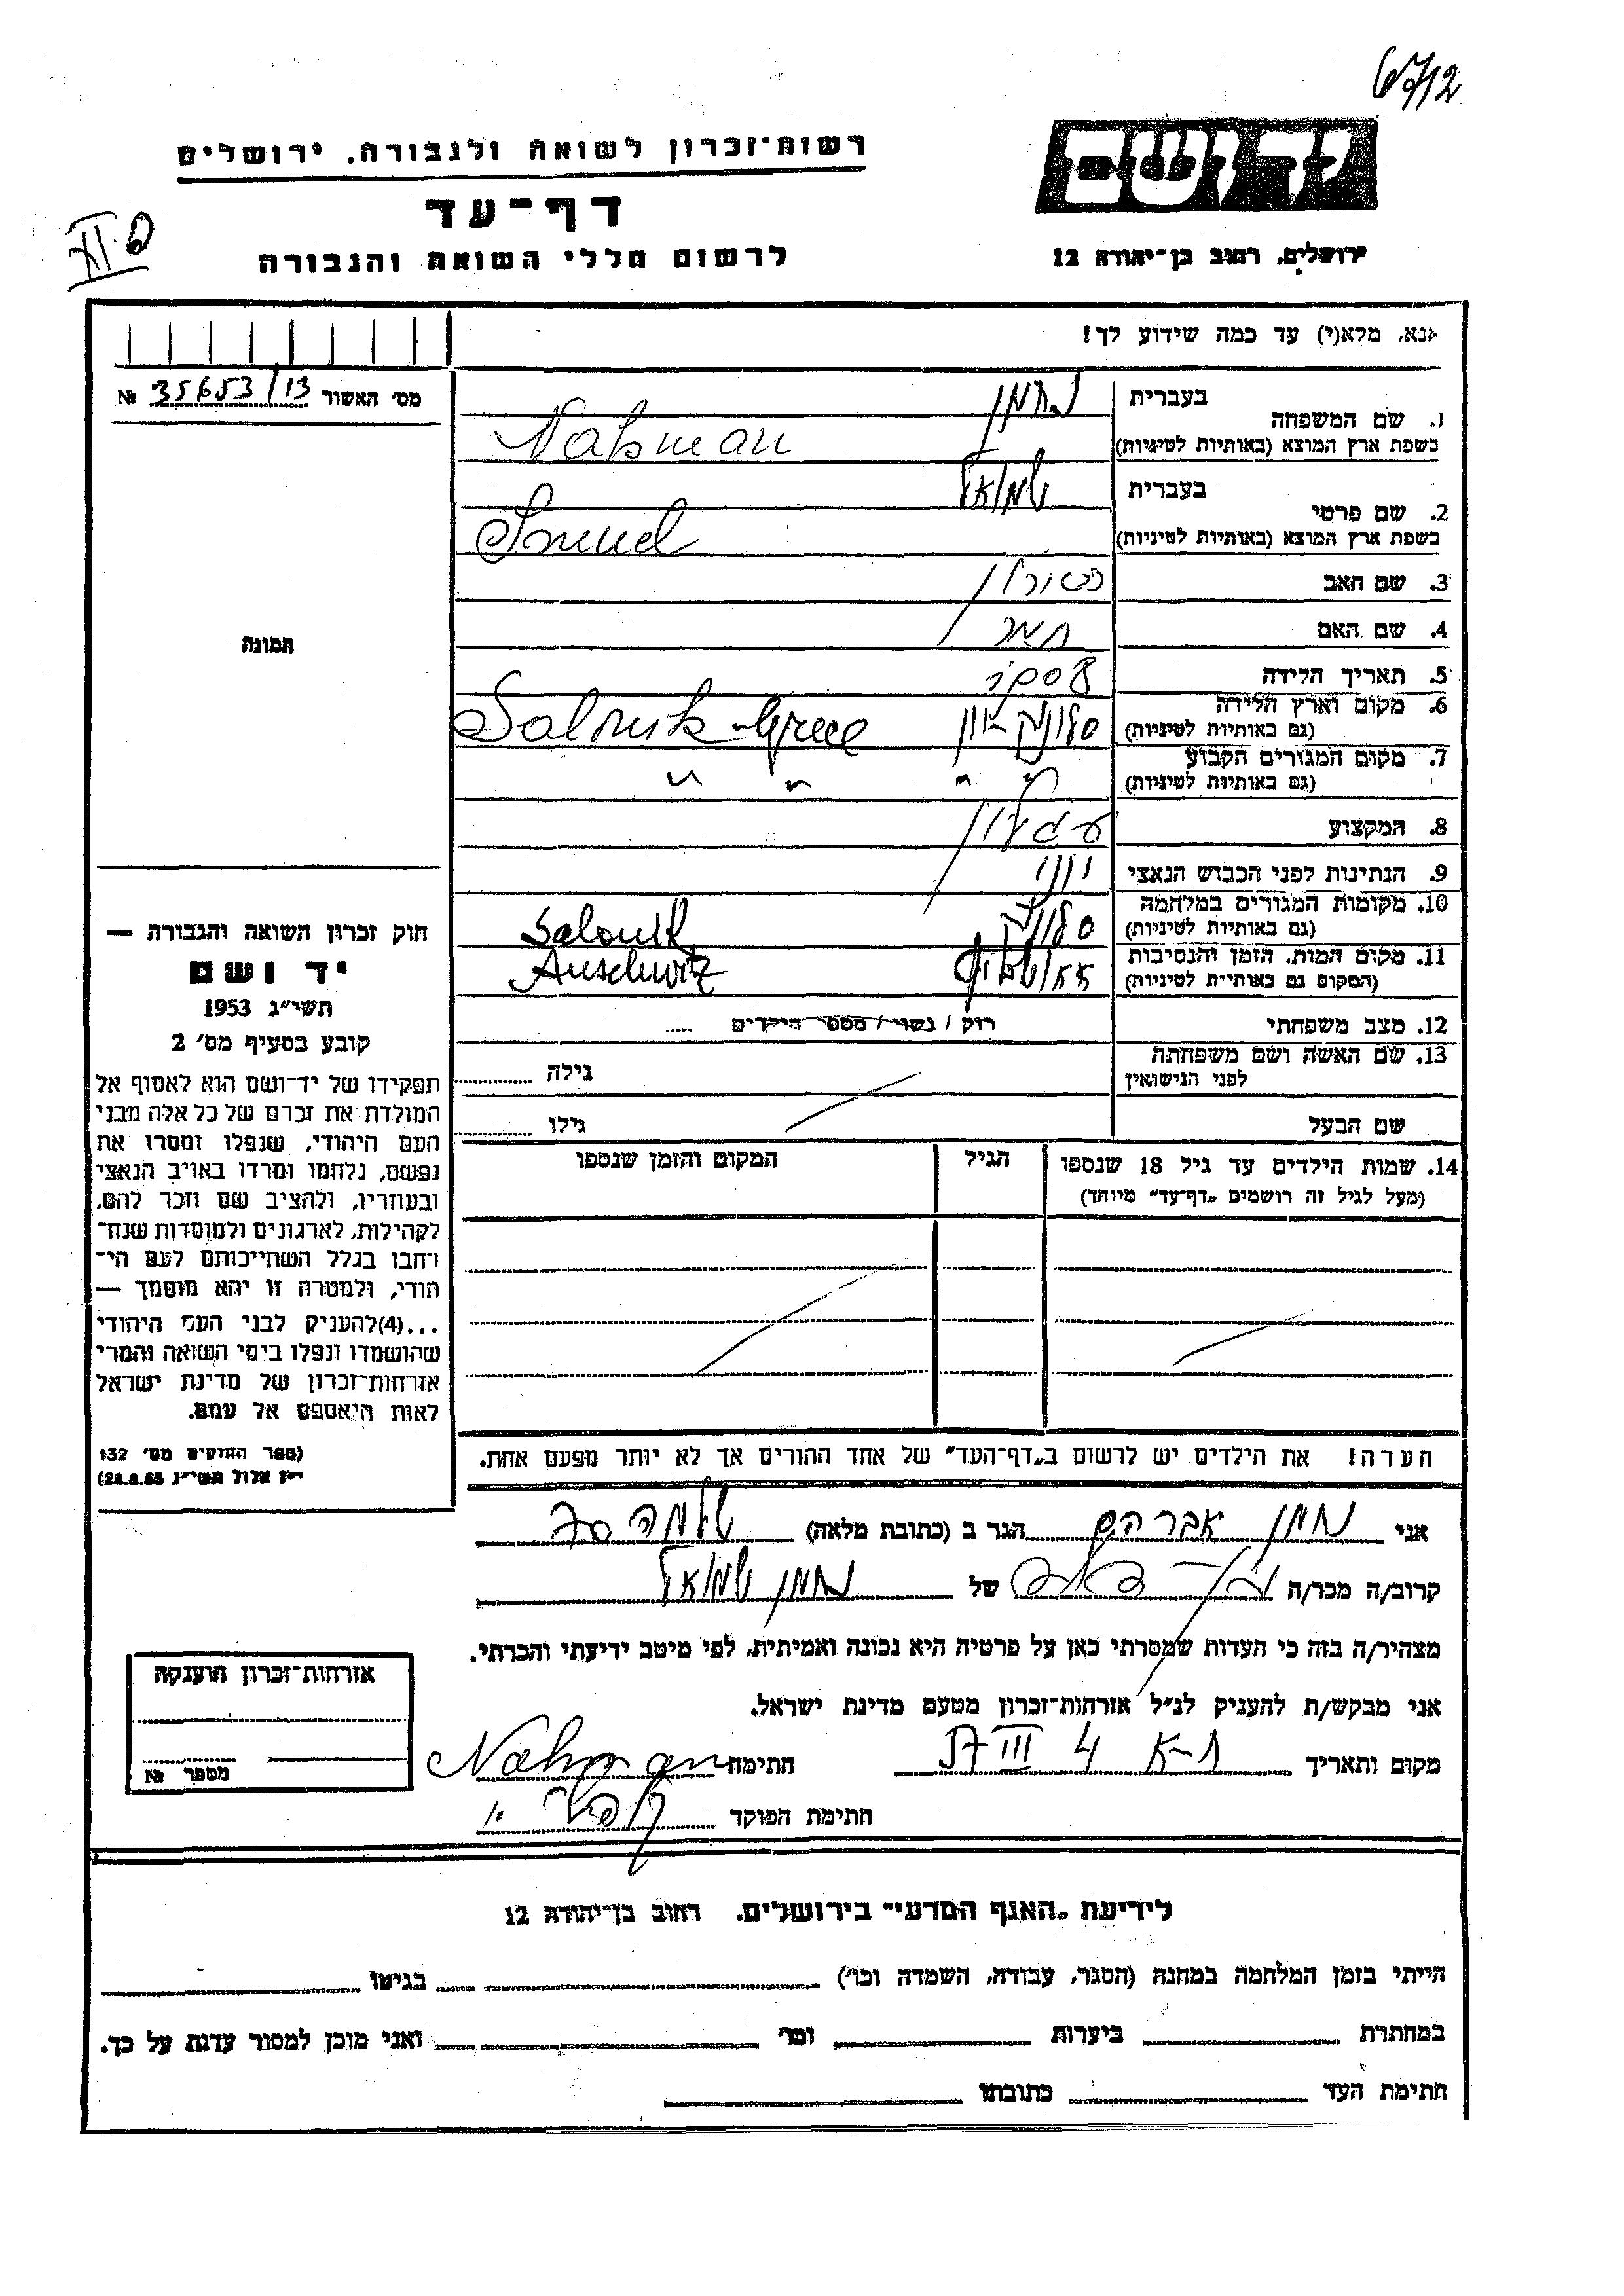 6712
יד ושם
רשות־זכרון לשואה ולגבורה, ירושלים
דף־עד
לרשום חללי השואה והגבורה
ירושלים, רחוב בן־יהודה 12
אנא, מלא(י) עד כמה שידוע לך!
מס׳ האשור 35653/13 №
תמונה
1. שם המשפחה בעברית נחמן
בשפת ארץ המוצא (באותיות לטיניות) Nahman
2. שם פרטי בעברית שמואל
בשפת ארץ המוצא (באותיות לטיניות)
3. שם האב
4. שם האם תמר
5. תאריך הלידה
6. מקום וארץ הלידה סלוניק יוון
(גם באותיות לטיניות) Salonik Grece
7. מקום המגורים הקבוע " "
(גם באותיות לטיניות) " "
8. המקצוע
9. הנתינות לפני הכבוש הנאצי יווני
10. מקומות המגורים במלחמה סלוניק
(גם באותיות לטיניות) Salonik
11. מקום המות, הזמן והנסיבות אאושוויץ
(המקום גם באותיית לטיניות) Auschwitz
12. מצב משפחתי רוק / נשוי / מספר הילדים
13. שם האשה ושם משפחתה
לפני הנישואין גילה
שם הבעל גילו
14. שמות הילדים עד גיל 18 שנספו הגיל המקום והזמן שנספו
(מעל לגיל זה רושמים „דף־עד״ מיוחד)
הערה! את הילדים יש לרשום ב„דף־העד״ של אחד ההורים אך לא יותר מפעם אחת.
חוק זכרון השואה והגבורה —
יד ושם
תשי״ג 1953
קובע בסעיף מס׳ 2
תפקידו של יד־ושם הוא לאסוף אל
המולדת את זכרם של כל אלה מבני
העם היהודי, שנפלו ומסרו את
נפשם, נלחמו ומרדו באויב הנאצי
ובעוזריו, ולהציב שם וזכר להם,
לקהילות, לארגונים ולמוסדות שנח־
רבו בגלל השתייכותם לעם הי־
הודי, ולמטרה זו יהא מוסמך —
...(4)להעניק לבני העם היהודי
שהושמדו ונפלו בימי השואה והמרי
אזרחות־זכרון של מדינת ישראל
לאות היאספם אל עמם.
(ספר החוקים מס׳ 132
י״ז אלול תשי״ג 28.8.53)
אני נחמן אברהם הגר ב (כתובת מלאה) שלמה
קרוב/ה מכר/ה של נחמן שמואל
מצהיר/ה בזה כי העדות שמסרתי כאן על פרטיה היא נכונה ואמיתית, לפי מיטב ידיעתי והכרתי.
אני מבקש/ת להעניק לנ״ל אזרחות־זכרון מטעם מדינת ישראל.
מקום ותאריך ת-א 4 III 57 חתימה Nahman
חתימת הפוקד
אזרחות־זכרון הוענקה
מספר №
לידיעת „האגף המדעי״ בירושלים, רחוב בן־יהודה 12
הייתי בזמן המלחמה במחנה (הסגר, עבודה, השמדה וכו׳) בגיטו
במחתרת ביערות וכו׳ ואני מוכן למסור עדות על כך.
חתימת העד כתובתו